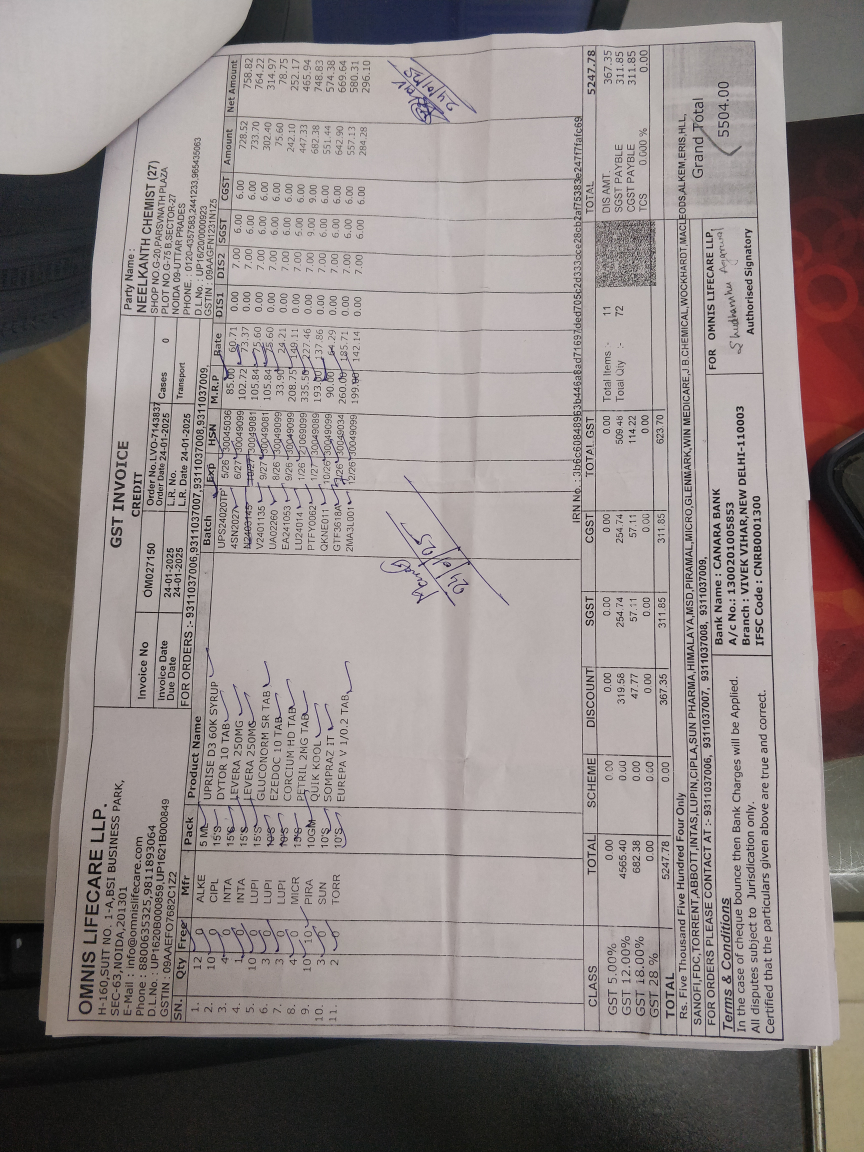 GST INVOICE
CREDIT
OMNIS LIFECARE LLP.
H-160,SUIT NO. 1-A,BSI BUSINESS PARK,
SEC-63,NOIDA,201301
E-Mail : info@omnislifecare.com
Phone : 8800635325,9811893064
D.L.No. : UP1620B000859,UP1621B000849
GSTIN : 09AAEFO7682C1Z2
Invoice No OM027150 Order No. LVO-7143837
Order Date 24-01-2025
Invoice Date 24-01-2025 L.R. No. Cases 0
Due Date 24-01-2025 L.R. Date 24-01-2025 Transport
FOR ORDERS :- 9311037006,9311037007,9311037008,9311037009,
Party Name :
NEELKANTH CHEMIST (27)
SHOP NO.G-20,PARSVNATH PLAZA
PLOT NO.G-75 B,SECTOR-27
NOIDA 09-UTTAR PRADES
PHONE. : 0120-4357583,2441233,965435063
D.L.No. : UP16/20/0000923
GSTIN : 09AAGFN1231N1Z5
SN. Qty Free Mfr Pack Product Name Batch Exp HSN M.R.P Rate DIS1 DIS2 SGST CGST Amount Net Amount
1. 12 0 ALKE 5 ML UPRISE D3 60K SYRUP UPS24020TP 5/26 30045036 85.00 60.71 0.00 7.00 6.00 6.00 728.52 758.82
2. 10 0 CIPL 15'S DYTOR 10 TAB 4SN2027 6/27 30049099 102.72 73.37 0.00 7.00 6.00 6.00 733.70 764.22
3. 4 0 INTA 15'S LEVERA 250MG N2403145 10/27 30049081 105.84 75.60 0.00 7.00 6.00 6.00 302.40 314.97
4. 1 0 INTA 15'S LEVERA 250MG V2401135 9/27 30049081 105.84 75.60 0.00 7.00 6.00 6.00 75.60 78.75
5. 10 0 LUPI 15'S GLUCONORM SR TAB UA02260 8/26 30049099 33.90 24.21 0.00 7.00 6.00 6.00 242.10 252.17
6. 3 0 LUPI 10'S EZEDOC 10 TAB EA241053 9/26 30049099 208.75 149.11 0.00 7.00 6.00 6.00 447.33 465.94
7. 3 0 LUPI 10'S CORCIUM HD TAB LU24014 1/26 21069099 335.50 227.46 0.00 7.00 9.00 9.00 682.38 748.83
8. 4 0 MICR 15'S PETRIL 2MG TAB PTFY0062 1/27 30049089 193.00 137.86 0.00 7.00 6.00 6.00 551.44 574.38
9. 10 10 PIRA 10GM QUIK KOOL QKNE011 10/26 30049099 90.00 64.29 0.00 7.00 6.00 6.00 642.90 669.64
10. 3 0 SUN 10'S SOMPRAZ IT GTF3618A 7/26 30049034 260.00 185.71 0.00 7.00 6.00 6.00 557.13 580.31
11. 2 0 TORR 10'S EUREPA V 1/0.2 TAB 2MA3L001 12/26 30049099 199.00 142.14 0.00 7.00 6.00 6.00 284.28 296.10
24/01/25
24/01/25
IRN No. :
CLASS TOTAL SCHEME DISCOUNT SGST CGST TOTAL GST
GST 5.00% 0.00 0.00 0.00 0.00 0.00 0.00
GST 12.00% 4565.40 0.00 319.58 254.74 254.74 509.48
GST 18.00% 682.38 0.00 47.77 57.11 57.11 114.22
GST 28 % 0.00 0.00 0.00 0.00 0.00 0.00
TOTAL 5247.78 0.00 367.35 311.85 311.85 623.70
Total Items :- 11
Total Qty :- 72
TOTAL 5247.78
DIS AMT. 367.35
SGST PAYBLE 311.85
CGST PAYBLE 311.85
TCS 0.000 % 0.00
Rs. Five Thousand Five Hundred Four Only
SANOFI,FDC,TORRENT,ABBOTT,INTAS,LUPIN,CIPLA,SUN PHARMA,HIMALAYA,MSD,PIRAMAL,MICRO,GLENMARK,WIN MEDICARE,J.B.CHEMICAL,WOCKHARDT,MACLEODS,ALKEM,ERIS,HLL,
FOR ORDERS PLEASE CONTACT AT :- 9311037006, 9311037007, 9311037008, 9311037009,
Grand Total
5504.00
Terms & Conditions
In the case of cheque bounce then Bank Charges will be Applied.
All disputes subject to Jurisdication only.
Certified that the particulars given above are true and correct.
Bank Name : CANARA BANK
A/c No.: 13002010005853
Branch : VIVEK VIHAR,NEW DELHI-110003
IFSC Code : CNRB0001300
FOR OMNIS LIFECARE LLP,
Shudhanshu Agarwal
Authorised Signatory